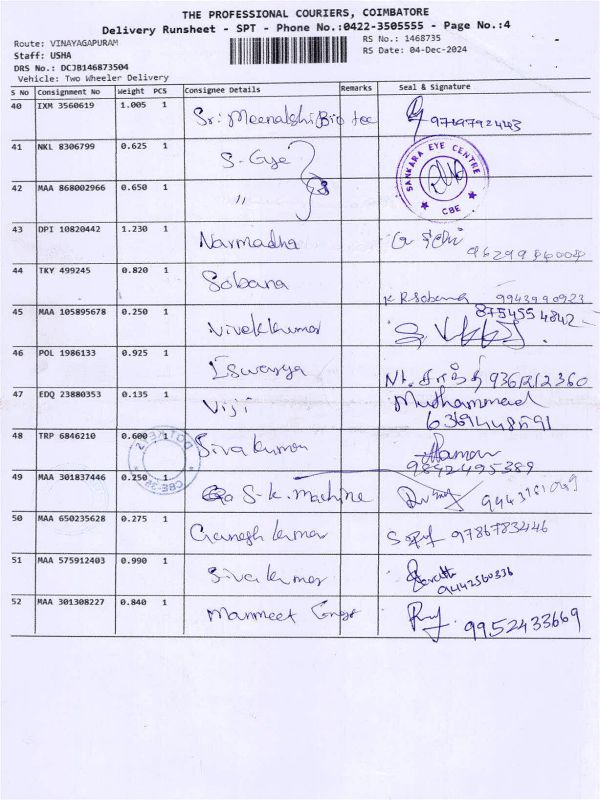 THE PROFESSIONAL COURIERS, COIMBATORE
Delivery Runsheet - SPT - Phone No.:0422-3505555 - Page No.:4
Route: VINAYAGAPURAM
RS No.: 1468735
Staff: USHA
RS Date: 04-Dec-2024
DRS No.: DCJB146873504
Vehicle: Two Wheeler Delivery
S No Consignment No Weight PCS Consignee Details Remarks Seal & Signature
40 IXM 3560619 1.005 1 Sri Meenakshi Bio tec
41 NKL 8306799 0.625 1 S-Eye
SANKARA EYE CENTRE
CBE
42 MAA 868002966 0.650 1 "
43 DPI 10820442 1.230 1 Narmadha
44 TKY 499245 0.820 1 Sobana K R Sobana 9943990923
45 MAA 105895678 0.250 1 Nivekkumar 8754554842
46 POL 1986133 0.925 1 Eswarya
47 EDQ 23880353 0.135 1 Viji Muthammad
48 TRP 6846210 0.600 1 Siva kumar 9842495389
49 MAA 301837446 0.250 1 S-k. machine
50 MAA 650235628 0.275 1 Ganesh kumar 9786783446
51 MAA 575912403 0.990 1 Siva kumar 9442560336
52 MAA 301308227 0.840 1 Manmeet Engg 9952433669